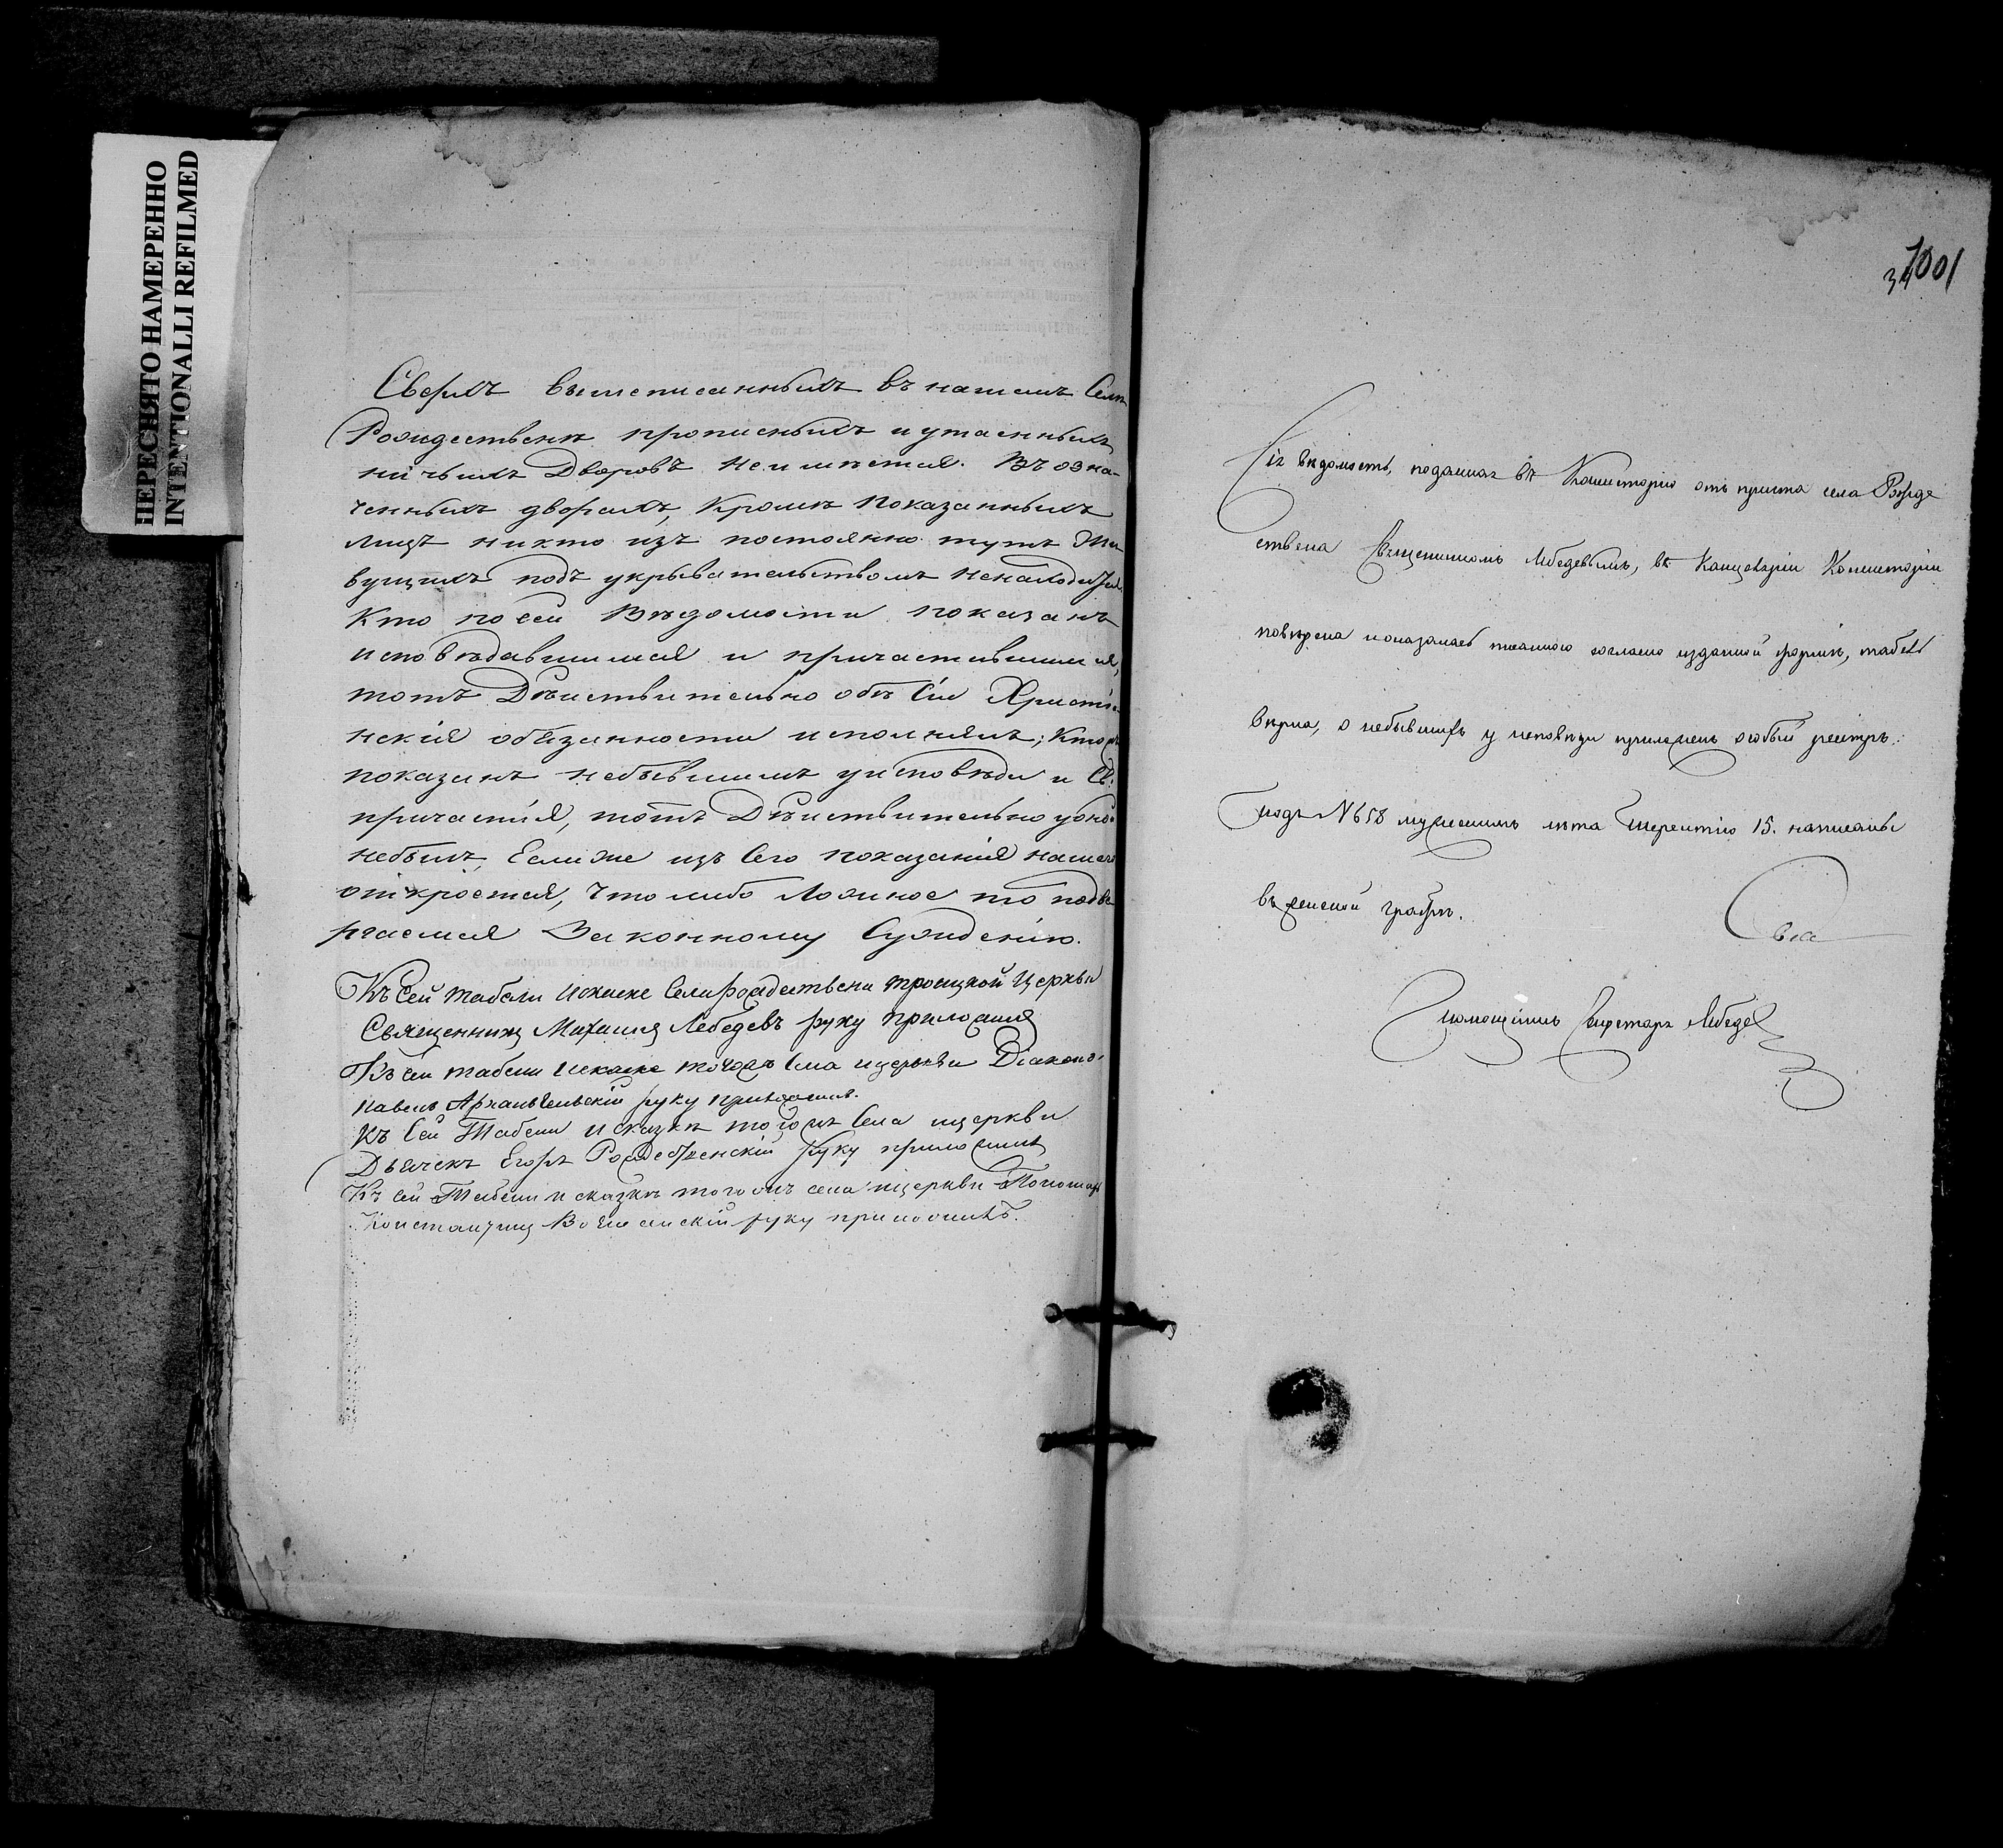 ПЕРЕСНЯТО НАМЕРЕННО
INTENTIONALLI REFILMED
Сверхъ вышеписанныхъ въ нашемъ Селѣ
Рождественѣ прописныхъ и утаенныхъ
ничьихъ Дворовъ неимѣется. Въ озна-
ченныхъ дворахъ, Кромѣ показанныхъ
лицъ никто изъ постоянно тутъ Жи
вущихъ подъ укрывательствомъ ненаходится
Кто по сей Вѣдомости показанъ
исповѣдавшимся и причастившимся,
тотъ Дѣйствительно обѣ Сіи Христіа
нскія обязанности исполнялъ; Кто
показанъ небывшимъ уисповѣди и Св.
причастія, тотъ Дѣйствительно уоно
небылъ, Если же изъ Сего показанія нашего
откроется, Что либо Ложное то подве
ргаемся Законному Сужденію.
Къ Сей табели искаске Села Рождествена троицкой Церкви
Священникъ Михаилъ Лебедевъ руку приложилъ
Къ сей табели искаске тогожъ Села ицеркви Діаконъ
павелъ Архангельскій руку приложилъ.
Къ Сей Табели исказкѣ тогожъ Села ицеркви
Дьячекъ Егоръ Рождественскій Руку приложилъ
Къ сей Табели исказкѣ тогожъ села ицеркви Пономарь
Константинъ руку приложилъ.
1001
34
Сія вѣдомость, поданная въ Консисторію отъ причта села Рожде
ствена Священникомъ Лебедевымъ, въ Канцеляріи Консисторіи
повѣрена и оказалась писанною согласно изданной формѣ, табель
вѣрна, о небывшихъ у исповѣди приложенъ особый реестръ.
подъ N 658 мужескимъ лѣта 15. написаны
въ женской графѣ.
Помощникъ Секретаря Лебедев